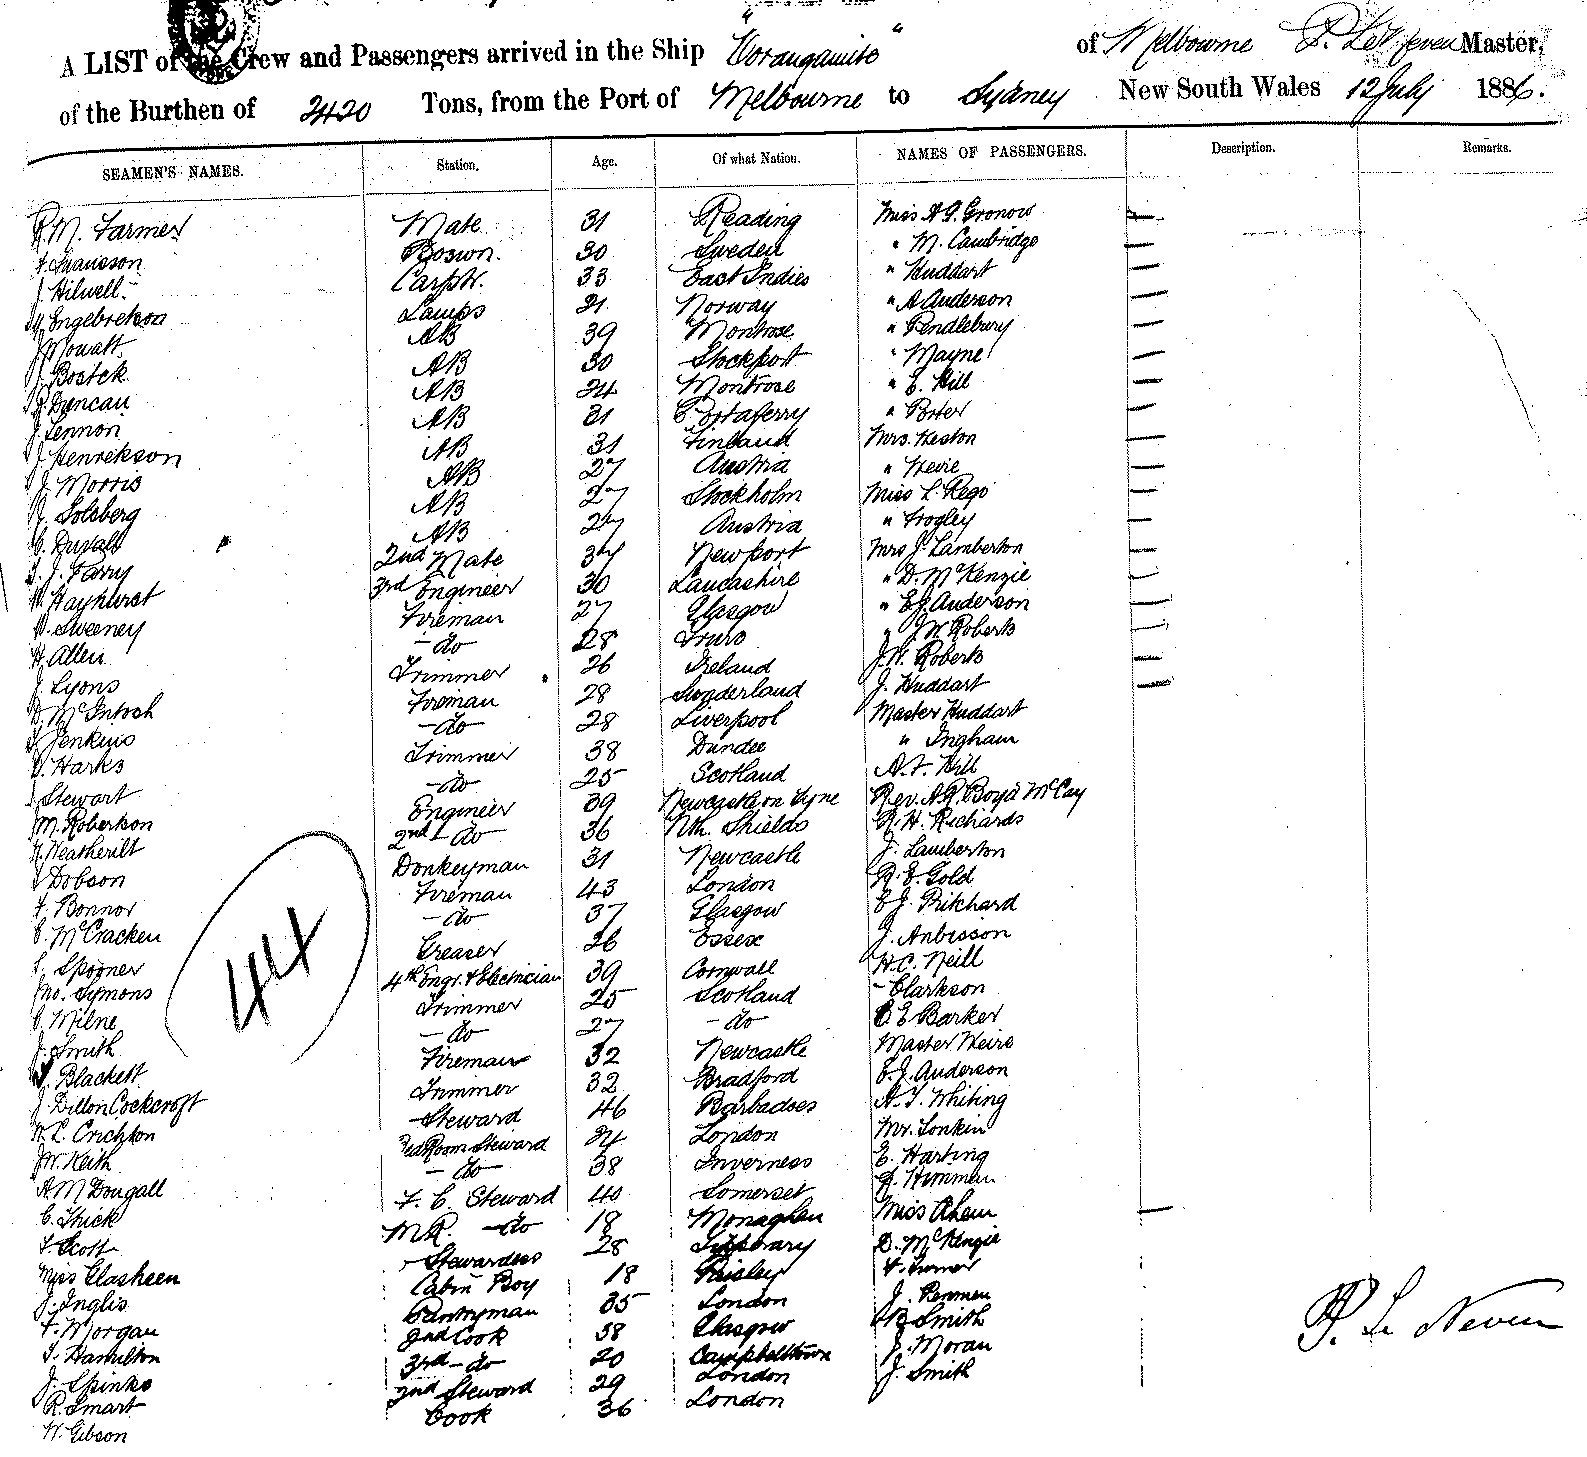 A LIST of the Crew and Passengers arrived in the Ship "Corangamite" of Melbourne P. Le Neven Master,
of the Burthen of 2420 Tons, from the Port of Melbourne to Sydney New South Wales 12 July 1886.
SEAMEN'S NAMES. Station. Age. Of what Nation. NAMES OF PASSENGERS. Description. Remarks.
R.M. Farmer Mate 31 Reading Miss A.G. Gronow
F. Swansson Boswn. 30 Sweden " M. Cambridge
J. Hilwell Carptr. 33 East Indies " Huddart
Engebretson Lamps 21 Norway " A Anderson
J Mowatt AB 39 Montrose " Pendlebury
J. Bostek AB 30 Stockport " Mayne
Duncan AB 24 Montrose " E. Hill
J. Lennon AB 31 Portaferry " Porter
J. Henrekson AB 31 Finland Mrs. Heston
J. Morris AB 27 Austria " Weire
Solsberg AB 27 Stockholm Miss L. Rego
C. Duvall AB 27 Austria " Frogley
T. J. Farry 2nd Mate 37 Newport Mrs J. Lamberton
W. Hayhurst 3rd Engineer 30 Lancashire " D. McKenzie
W. Sweeney Fireman 27 Glasgow " E.J. Anderson
H. Allen - do 28 Truro " J.W. Roberts
J. Lyons Trimmer 26 Ireland J.W. Roberts
D. McIntosh Fireman 28 Sunderland J. Huddart
Jenkins - do 28 Liverpool Master Huddart
Harks Trimmer 38 Dundee " Ingham
Stewart - do 25 Scotland A.F. Hill
M. Robertson Engineer 39 Newcastle on Tyne Rev. A.R. Boyd McCay
Weatherilt 2nd - do 36 Nth. Shields R.H. Richards
Dobson Donkeyman 31 Newcastle J. Lamberton
F. Bonnor Fireman 43 London R.E. Gold
C. McCracken - do 37 Glasgow E.J. Pritchard
Spooner Greaser 26 Essex J. Anbisson
Jno. Symons 4th Engr. & Electrician 39 Cornwall H.C. Neill
C. Milne Trimmer 25 Scotland - Clarkson
J. Smith - do 27 - do C E Barker
Blackett Fireman 32 Newcastle Master Weire
J. Dillon Cockcroft Trimmer 32 Bradford E.J. Anderson
W.L. Crichton Steward 46 Barbadoes A.T. Whiting
J.W. Keith Room Steward 24 London Mr. Tonkin
A McDougall - do 38 Inverness E. Harting
C. Thick F. C. Steward 40 Somerset Hinman
F. Scott M.R. do 18 Monaghan Miss Ahern
Miss Glasheen Stewardess 28 Tipperary D. McKenzie
J. Inglis Cabin Boy 18 Paisley F. Turner
F. Morgan Pantryman 35 London J. Penman
T. Hamilton 2nd Cook 38 Glasgow Smith
J. Spinks 3rd - do 20 Campbelltown J. Moran
R. Smart 2nd Steward 29 London J. Smith
W. Gibson Cook 36 London
44
P. Le Neven